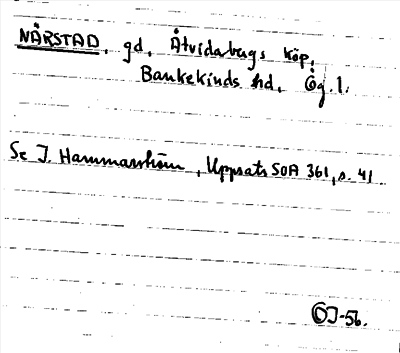 NÄRSTAD, gd, Åtvidabergs köp,
Bankekinds hd, Ög. l.
Se I. Hammarström, Uppsats SOA 361, s. 41
OJ-56.